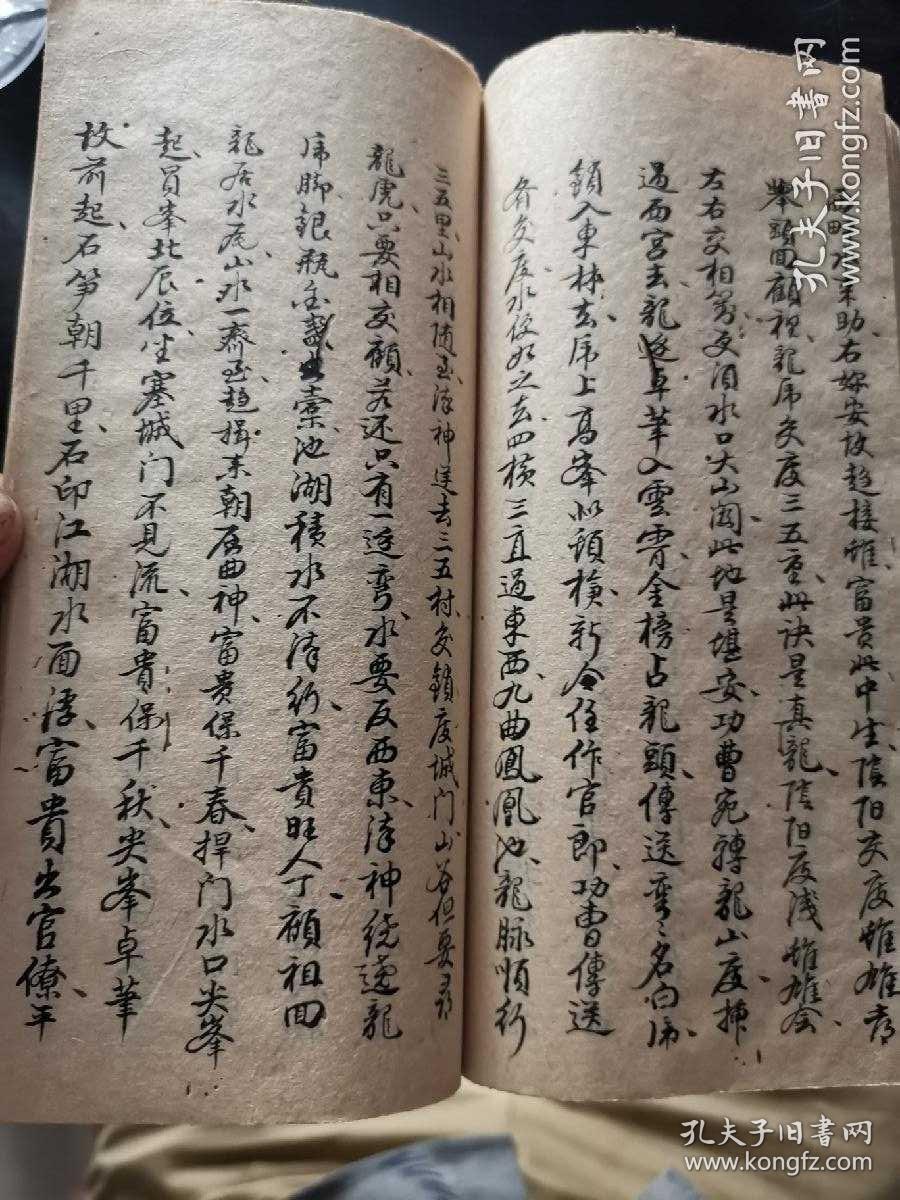 水来助、右好安故起接雄、富贵此中生、陰阳交度雌雄
舉頭回顧視、龍虎交度三五重、此诀是真龍、陰阳度浅雌雄会、
左右交相、更須水口尖山闊、此地是堪安、功曹宛轉龍山度
過西宫去、龍逆卓筆入雲霄、金榜占龍頭、傳送弯弯名白虎、
鎖入東林去、虎上高峯似頭横、新令任作官郎、功曹傳送
各交度、水低如之去、四横三直過東西、九曲鳳凰池、龍脉順行
三五里、山水相随去、漳神送去三五村、交鎖度城门、山谷但要
龍虎只要相交顧、若还只有一邊弯、水要反西東、漳神繞邊龍
虎脚、銀瓶金盞囊、池湖積水不漳行、富貴旺人丁、顧祖回
龍居水尾、山水一齊、趋揖来朝居曲神、富贵保千春、捍门水口尖峯
起、員峯北辰位、坐塞城门不見流、富貴保千秋、尖峯卓筆
故前起、石笋朝千里、石印江湖水面浮、富貴出官僚、平
孔夫子旧书网
www.kongfz.com
孔夫子旧书网
www.kongfz.com